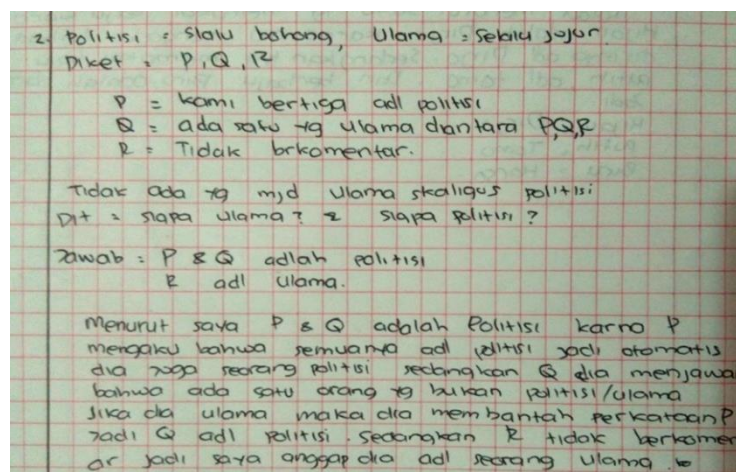 2. Politisi = slalu bohong, Ulama = selalu jujur.
Diket = P, Q, R
P = kami bertiga adl politisi
Q = ada satu yg ulama diantara P,Q,R
R = Tidak brkomentar.
Tidak ada yg mjd ulama skaligus politisi
Dit = siapa ulama? & siapa politisi?
Jawab = P & Q adlah politisi
R adl ulama.
Menurut saya P & Q adalah Politisi karno P
mengaku bahwa semuanya adl politisi jadi otomatis
dia juga seorang politisi sedangkan Q dia menjawa
bahwa ada satu orang yg bukan politisi/ulama
Jika dia ulama maka dia membantah perkataan P
Jadi Q adl politisi. Sedangkan R tidak berkomen
ar jadi saya anggap dia adl seorang ulama